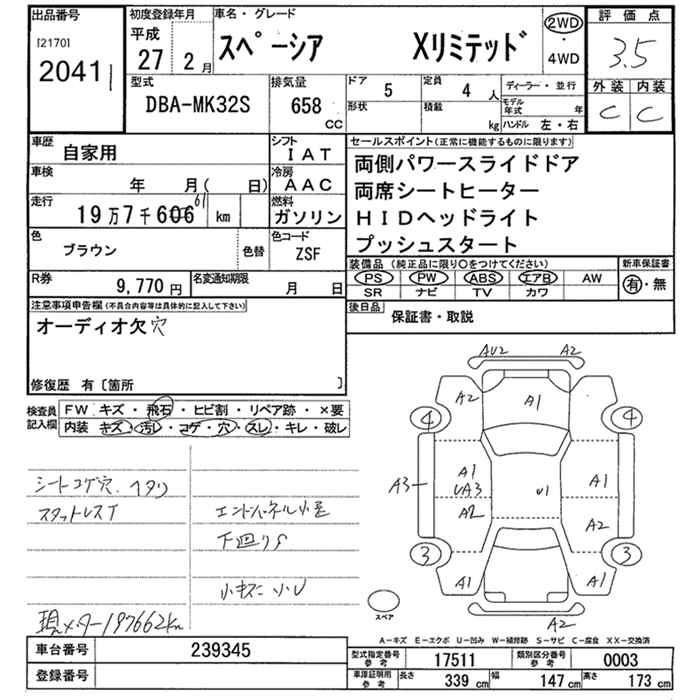 出品番号
[2170]
2041
初度登録年月
平成
27 2月
車名・グレード
スペーシア Xリミテッド
2WD
4WD
評価点
3.5
外装 内装
C C
型式
DBA-MK32S
排気量
658 CC
ドア 5
定員 4人
形状
積載 kg
ディーラー・並行
モデル年式 年
ハンドル 左・右
車歴 自家用
シフト IAT
車検 年 月( 日)
冷房 AAC
走行 19万7千606 61 km
燃料 ガソリン
色 ブラウン
色替
色コード ZSF
R券 9,770円
名変通知期限 月 日
セールスポイント(正常に機能するものに限ります)
両側パワースライドドア
両席シートヒーター
HIDヘッドライト
プッシュスタート
装備品(純正品に限り○をつけてください)
PS PW ABS エアB AW
SR ナビ TV カワ
新車保証書
有・無
後日品 保証書・取説
注意事項申告欄(不具合内容等は具体的に記入して下さい)
オーディオ欠穴
修復歴 有〔箇所 〕
検査員記入欄
FW キズ・飛石・ヒビ割・リペア跡・×要
内装 キズ・汚レ・コゲ・穴・スレ・キレ・破レ
シートコゲ穴、ヘタリ
スタットレスT
エンドパネル小歪
下廻りS
小キズ小U
現メーター197662km
AU2 A2
A2 A1
4 4
A3 A1 UA3 A2
U1
A1 A2
3 3
A1 A1
A2
スペア
A-キズ E-エクボ U-凹み W-補修跡 S-サビ C-腐食 XX-交換済
車台番号 239345
登録番号
型式指定番号 参考 17511
類別区分番号 参考 0003
車庫証明用 参考
長さ 339 cm
幅 147 cm
高さ 173 cm